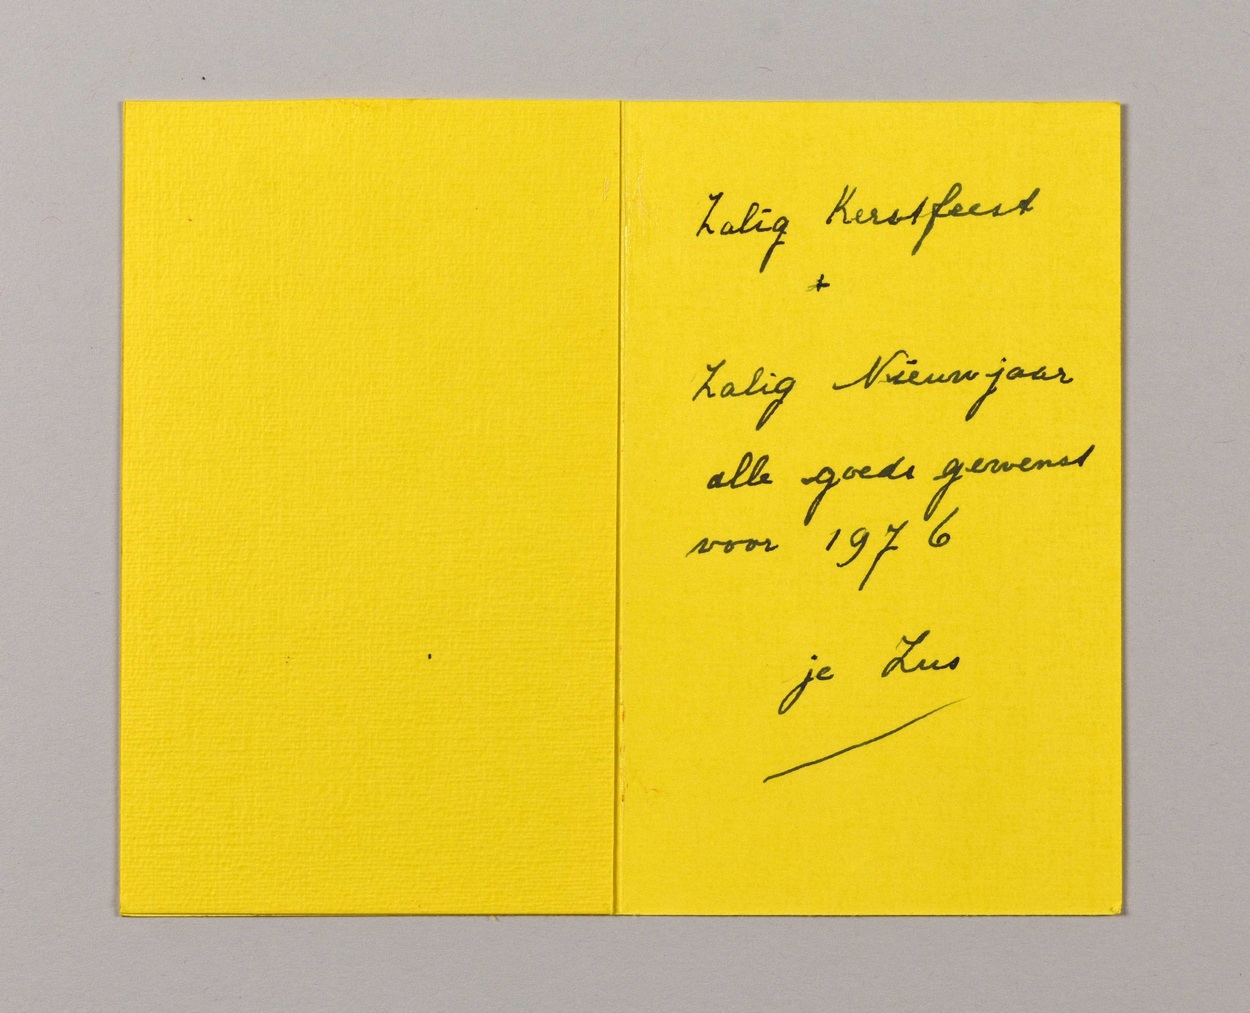 Zalig Kerstfeest
+
Zalig Nieuwjaar
alle goeds gewenst
voor 1976
je Zus